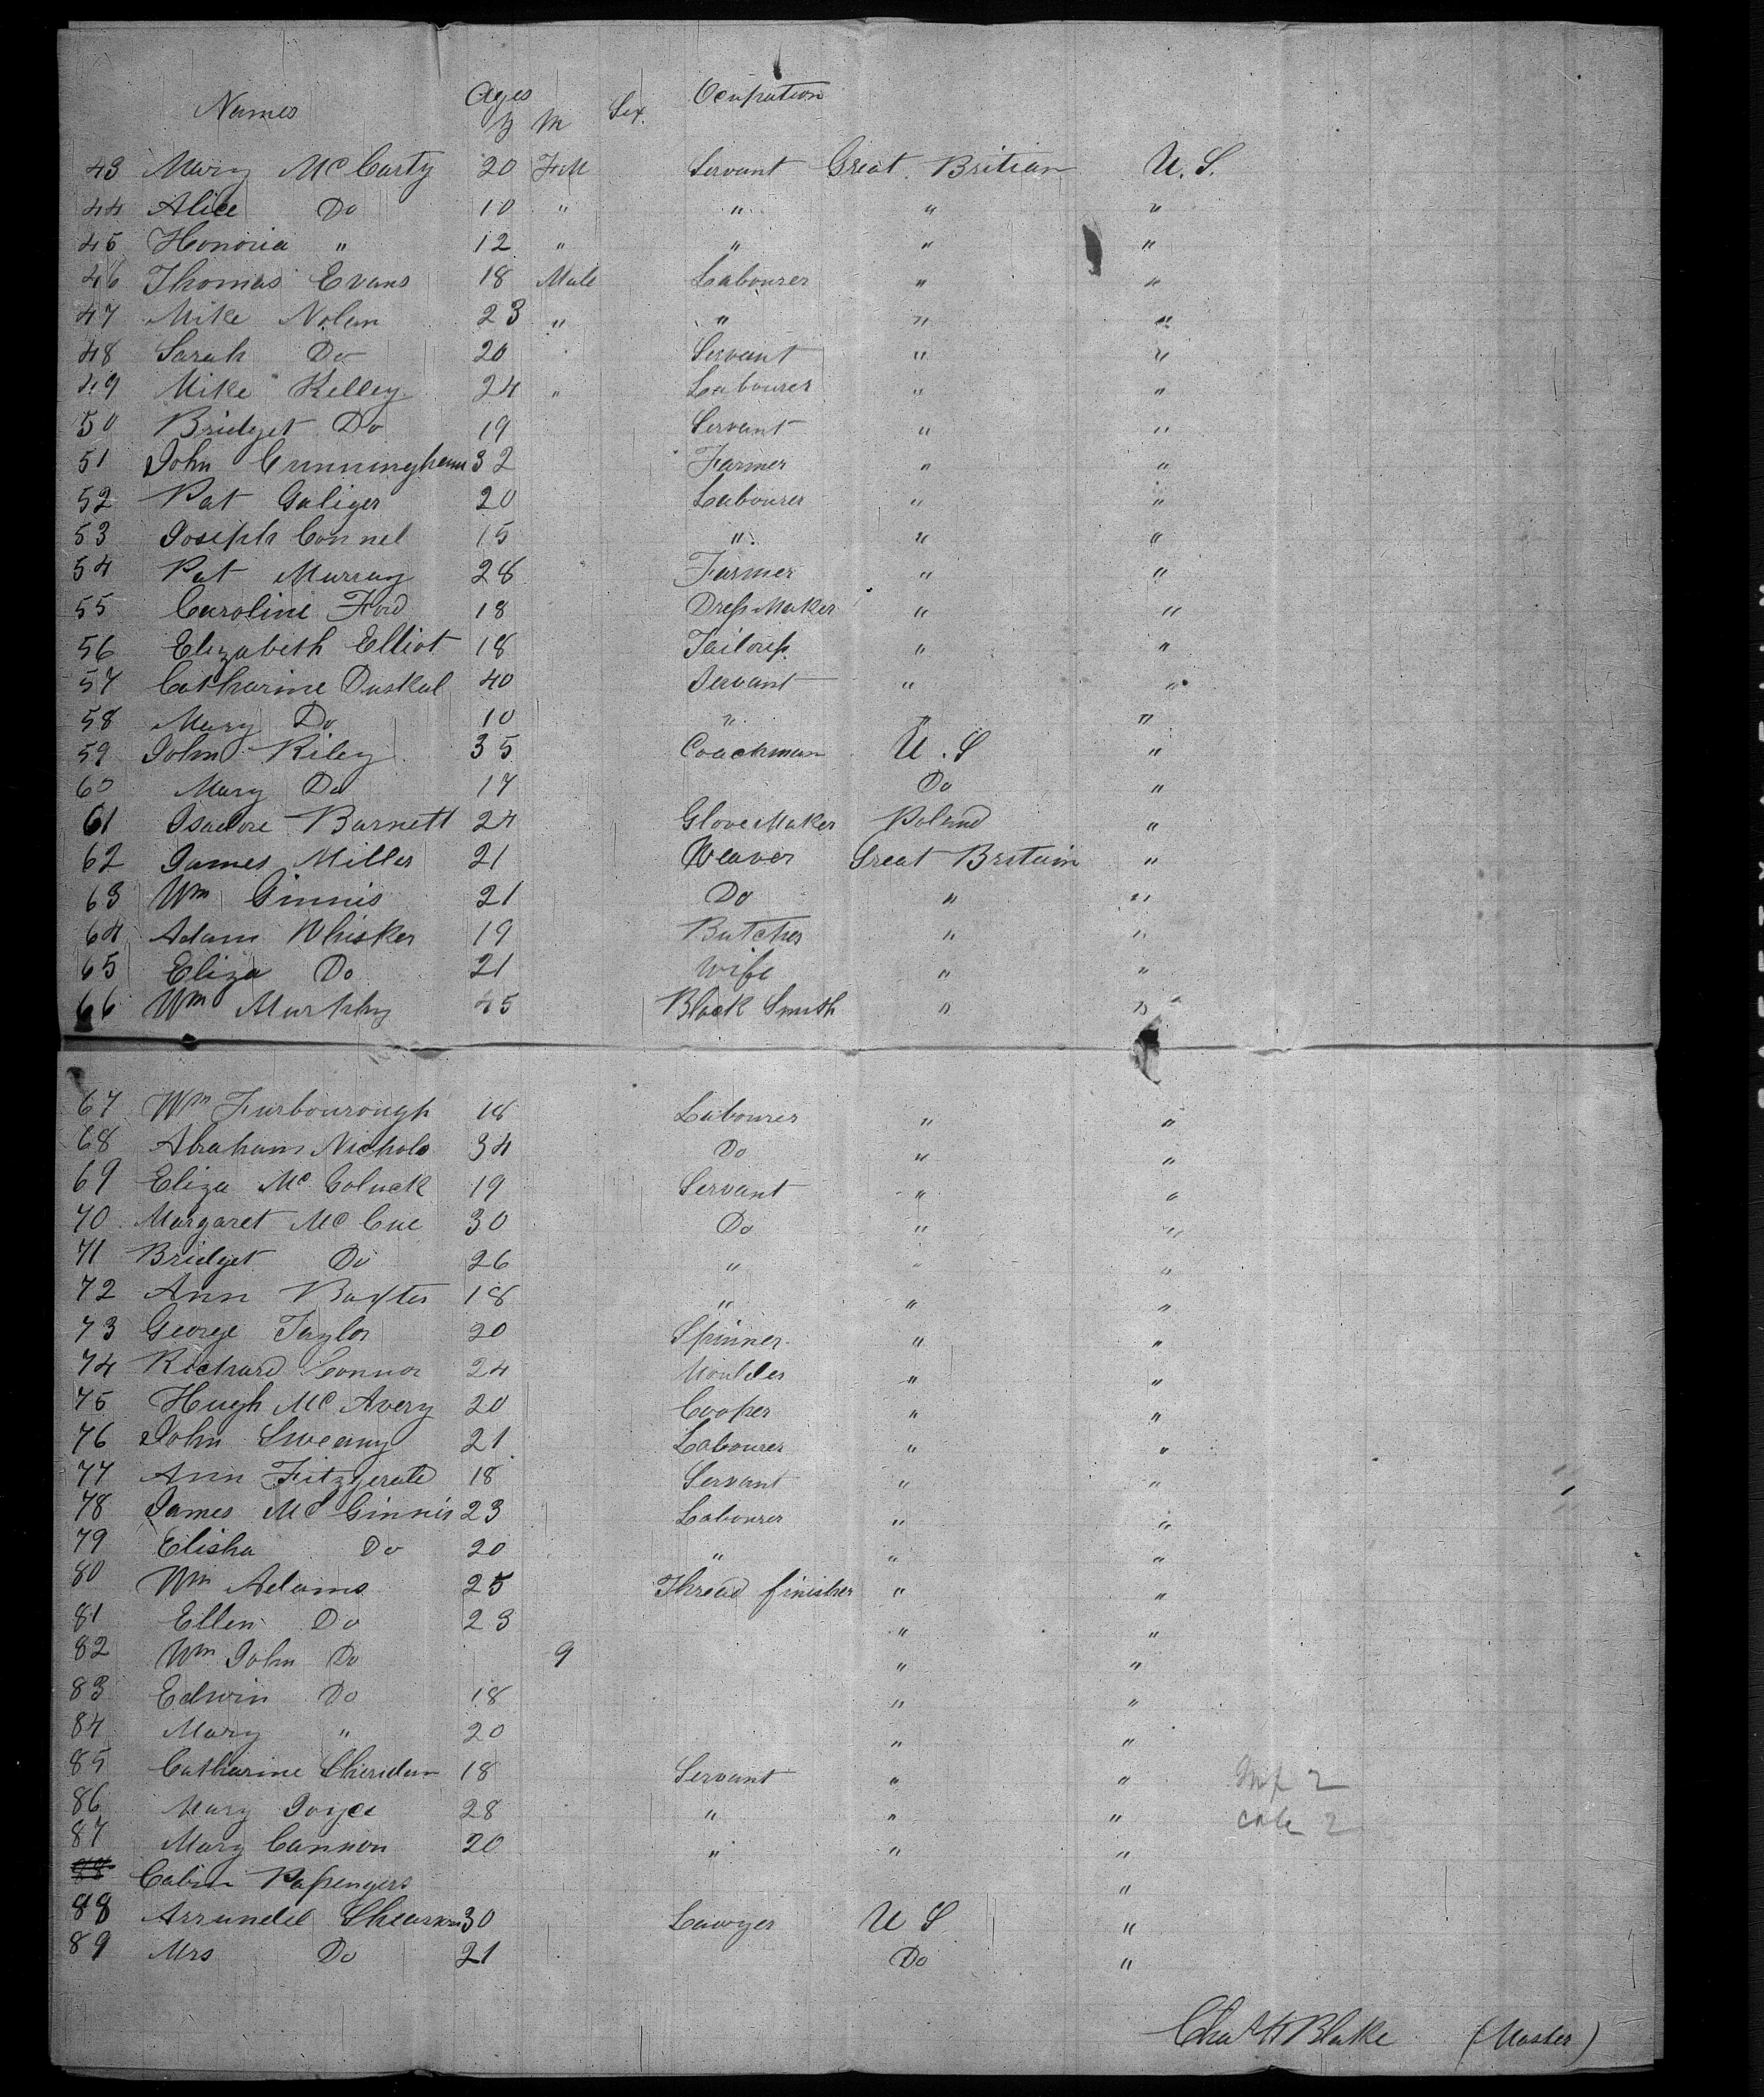 Names Ages Sex. Ocupation
Y M
43 Mary McCarty 20 Fem Servant Great Britian U. S.
44 Alice Do 10 " " " "
45 Honoria " 12 " " " "
46 Thomas Evans 18 Male Labourer " "
47 Mike Nolan 23 " " " "
48 Sarah Do 20 Servant " "
49 Mike Kelley 24 " Labourer " "
50 Bridget Do 19 Servant " "
51 John Cunningham 32 Farmer " "
52 Pat Galiger 20 Labourer " "
53 Joseph Connel 15 " " "
54 Pat Murray 28 Farmer " "
55 Caroline Ford 18 Dress Maker " "
56 Elizabeth Elliot 18 Tailoress " "
57 Catharine Duskal 40 Servant " "
58 Mary Do 10 " " "
59 John Riley 35 Coachman U. S "
60 Mary Do 17 Do "
61 Isadore Barnett 24 Glove Maker Poland "
62 James Miller 21 Weaver Great Britain "
63 Wm Ginnis 21 Do " "
64 Adam Whisker 19 Butcher " "
65 Eliza Do 21 Wife " "
66 Wm Murphy 45 Black Smith " "
67 Wm Furbourough 18 Labourer " "
68 Abraham Nichols 34 Do " "
69 Eliza Mc Goluck 19 Servant " "
70 Margaret McCue 30 Do " "
71 Bridget Do 26 " " "
72 Ann Baxter 18 " " "
73 George Taylor 20 Spinner " "
74 Richard Connor 24 Moulder " "
75 Hugh McAvery 20 Cooper " "
76 John Sweany 21 Labourer " "
77 Ann Fitzgerald 18 Servant " "
78 James McGinnis 23 Labourer " "
79 Elisha Do 20 " " "
80 Wm Adams 25 Thread finisher " "
81 Ellen Do 23 " "
82 Wm John Do 9 " "
83 Edwin Do 18 " "
84 Mary " 20 " "
85 Catharine Sheridan 18 Servant " " Inf 2
86 Mary Joyce 28 " " " 2
87 Mary Cannon 20 " " "
Cabin Passengers "
88 Arrundel Shearson 30 Lawyer U S "
89 Mrs Do 21 Do "
Chas H Blake (Master)